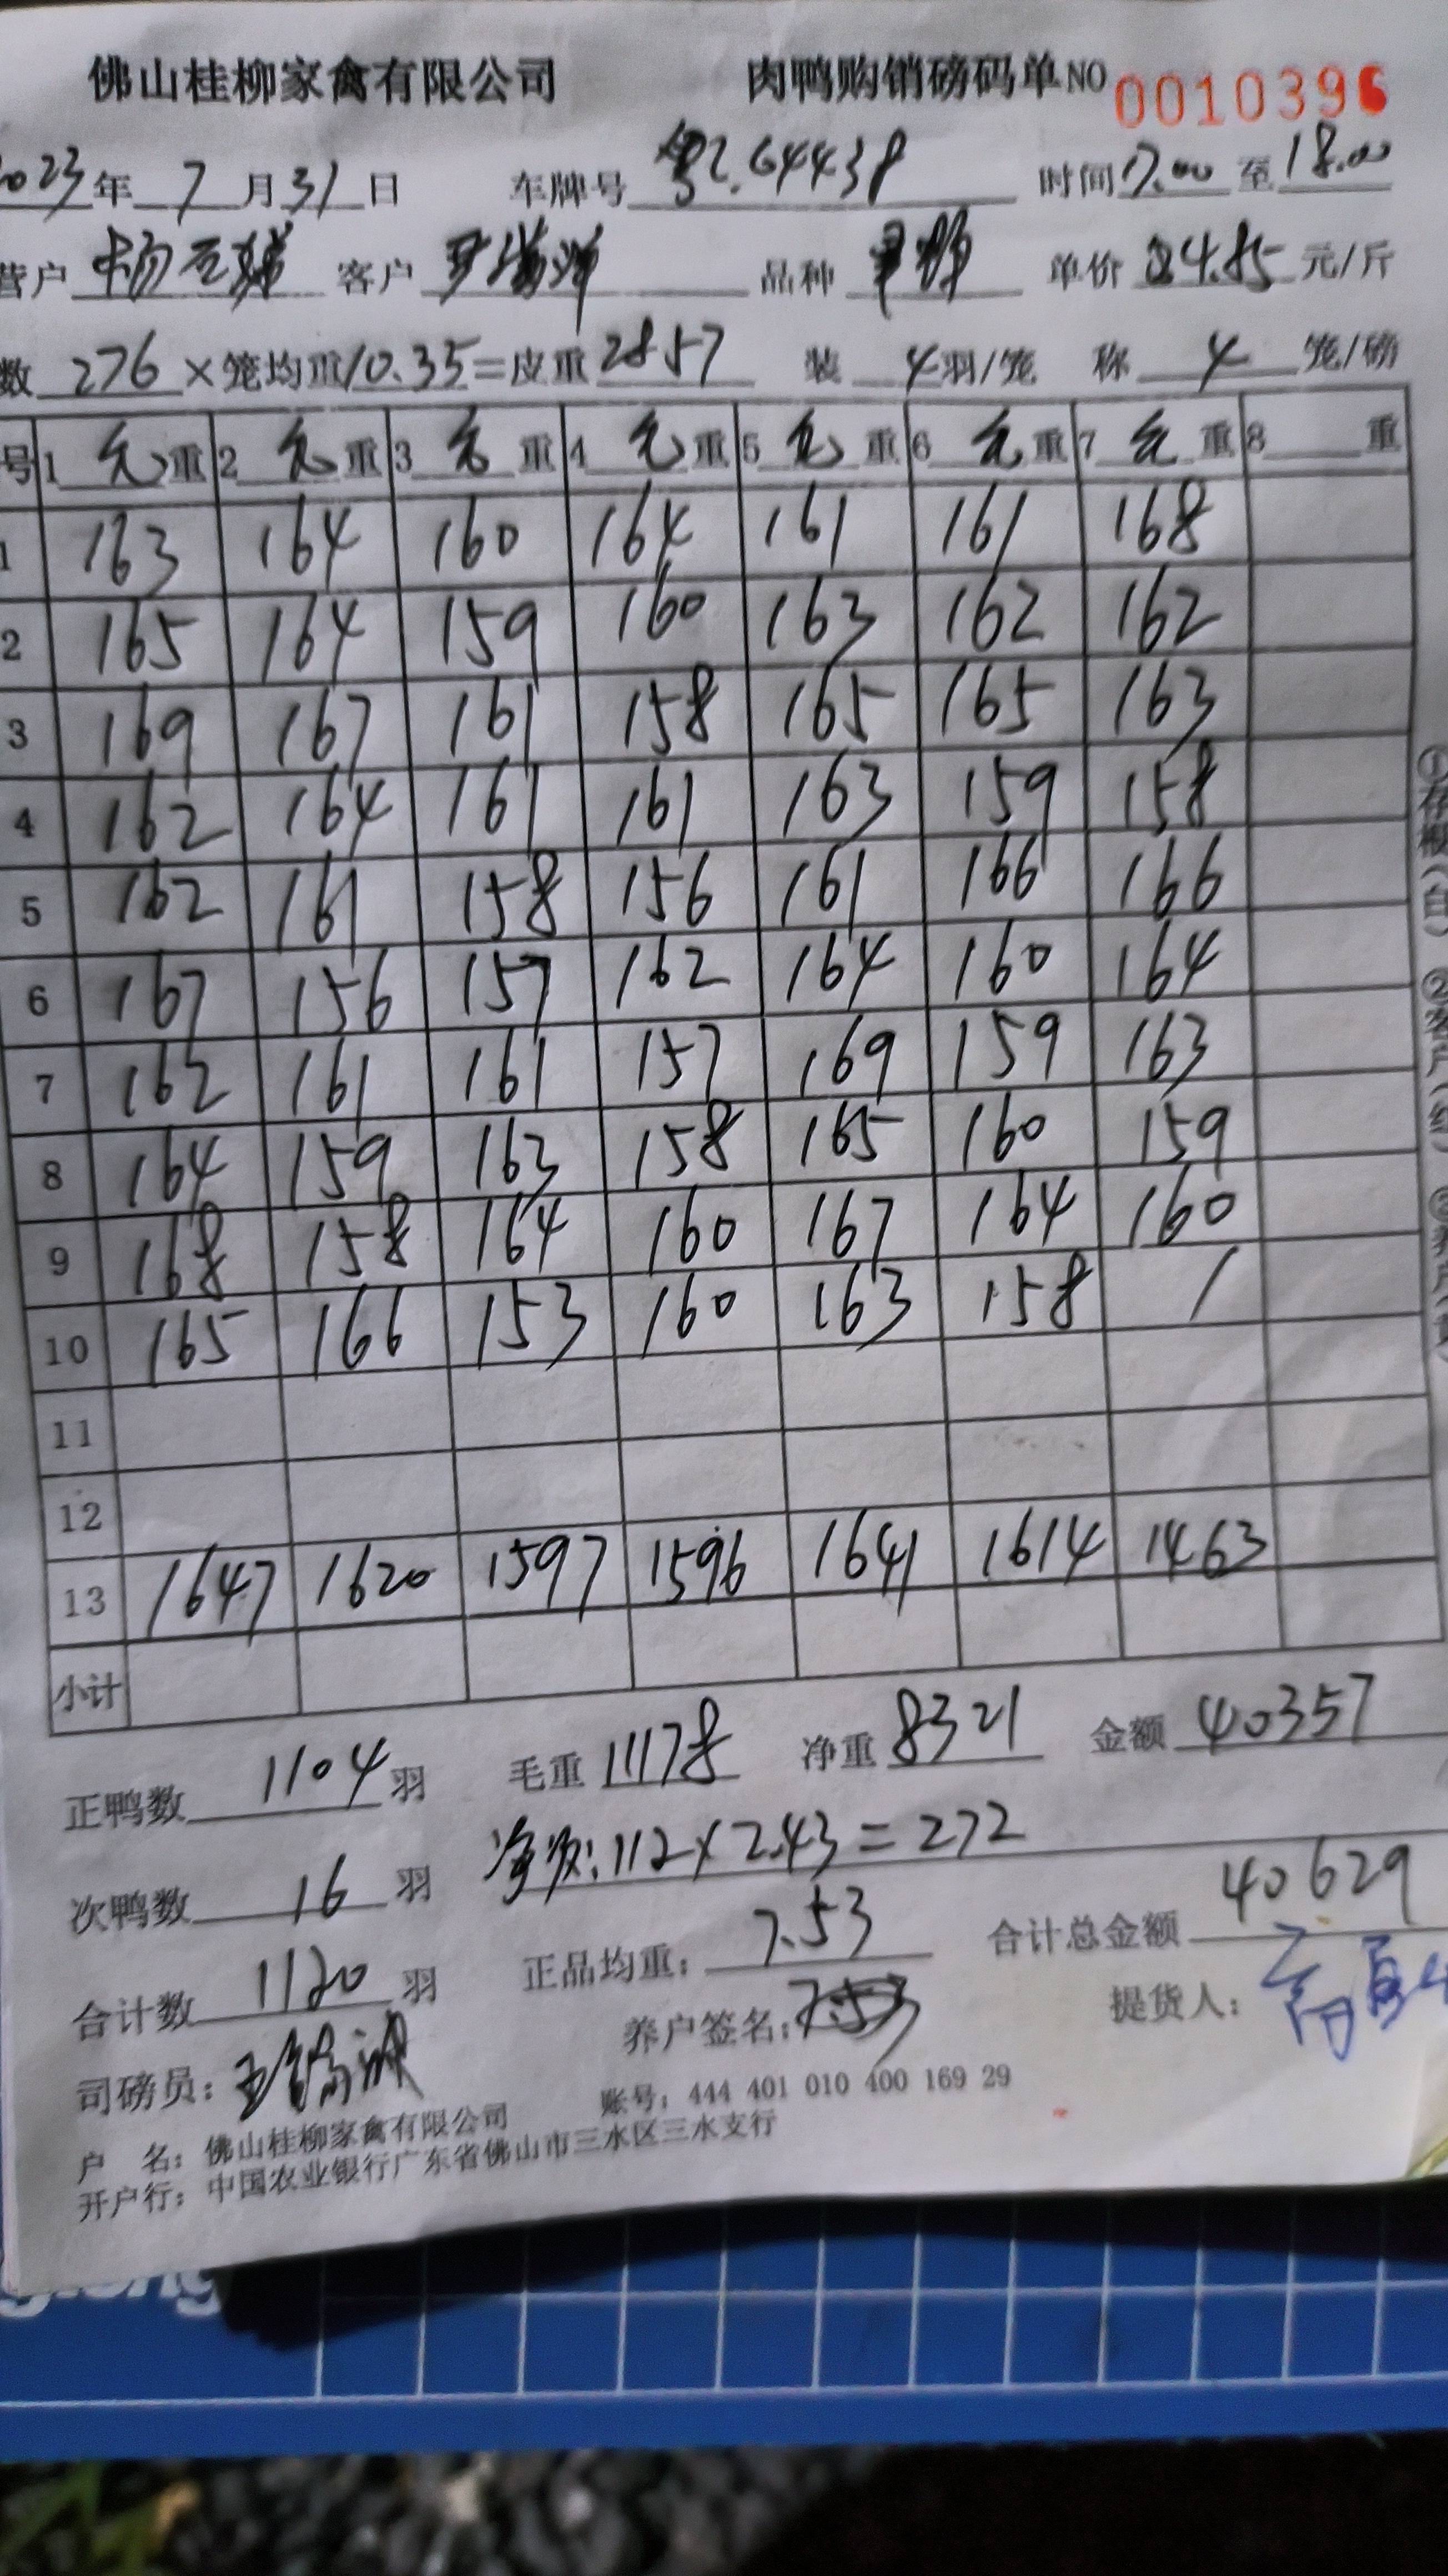 佛山桂柳家禽有限公司 肉鸭购销磅码单 NO 0010396
2023年 7 月 31 日 车牌号 粤2.64438 时间 17.00 至 18.00
营户 客户 品种 单价 4.85 元/斤
数 276 ×笼均重 10.35 =皮重 2857 装 4 羽/笼 称 4 笼/磅
号 1 毛重 2 毛重 3 毛重 4 毛重 5 毛重 6 毛重 7 毛重 8 重
1 163 164 160 164 161 161 168
2 165 164 159 160 163 162 162
3 169 167 161 158 165 165 163
4 162 164 161 161 163 159 158
5 162 161 158 156 161 166 166
6 167 156 157 162 164 160 164
7 162 161 161 157 169 159 163
8 164 159 163 158 165 160 159
9 168 158 164 160 167 164 160
10 165 166 153 160 163 158 /
11
12
13 1647 1620 1597 1596 1641 1614 1463
小计
正鸭数 1104 羽 毛重 11178 净重 8321 金额 40357
次鸭数 16 羽 112×2.43=272
合计数 1120 羽 正品均重: 7.53 合计总金额 40629
司磅员: 养户签名: 提货人:
户 名: 佛山桂柳家禽有限公司 账号: 444 401 010 400 169 29
开户行: 中国农业银行广东省佛山市三水区三水支行